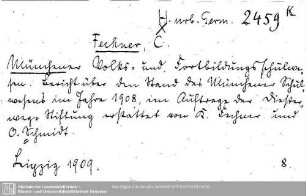 H. urb. Germ. 2459 K
Fechner, C
Münchener Volks- und Fortbildungsschulwe-
sen. Bericht über den Stand des Münchener Schul
wesens im Jahre 1908, im Auftrage der Diester-
wegs Stiftung erstattet von K. Fechner und
O. Schmidt.
Leipzig 1909. 8.
Sächsische Landesbibliothek -
Staats- und Universitätsbibliothek Dresden